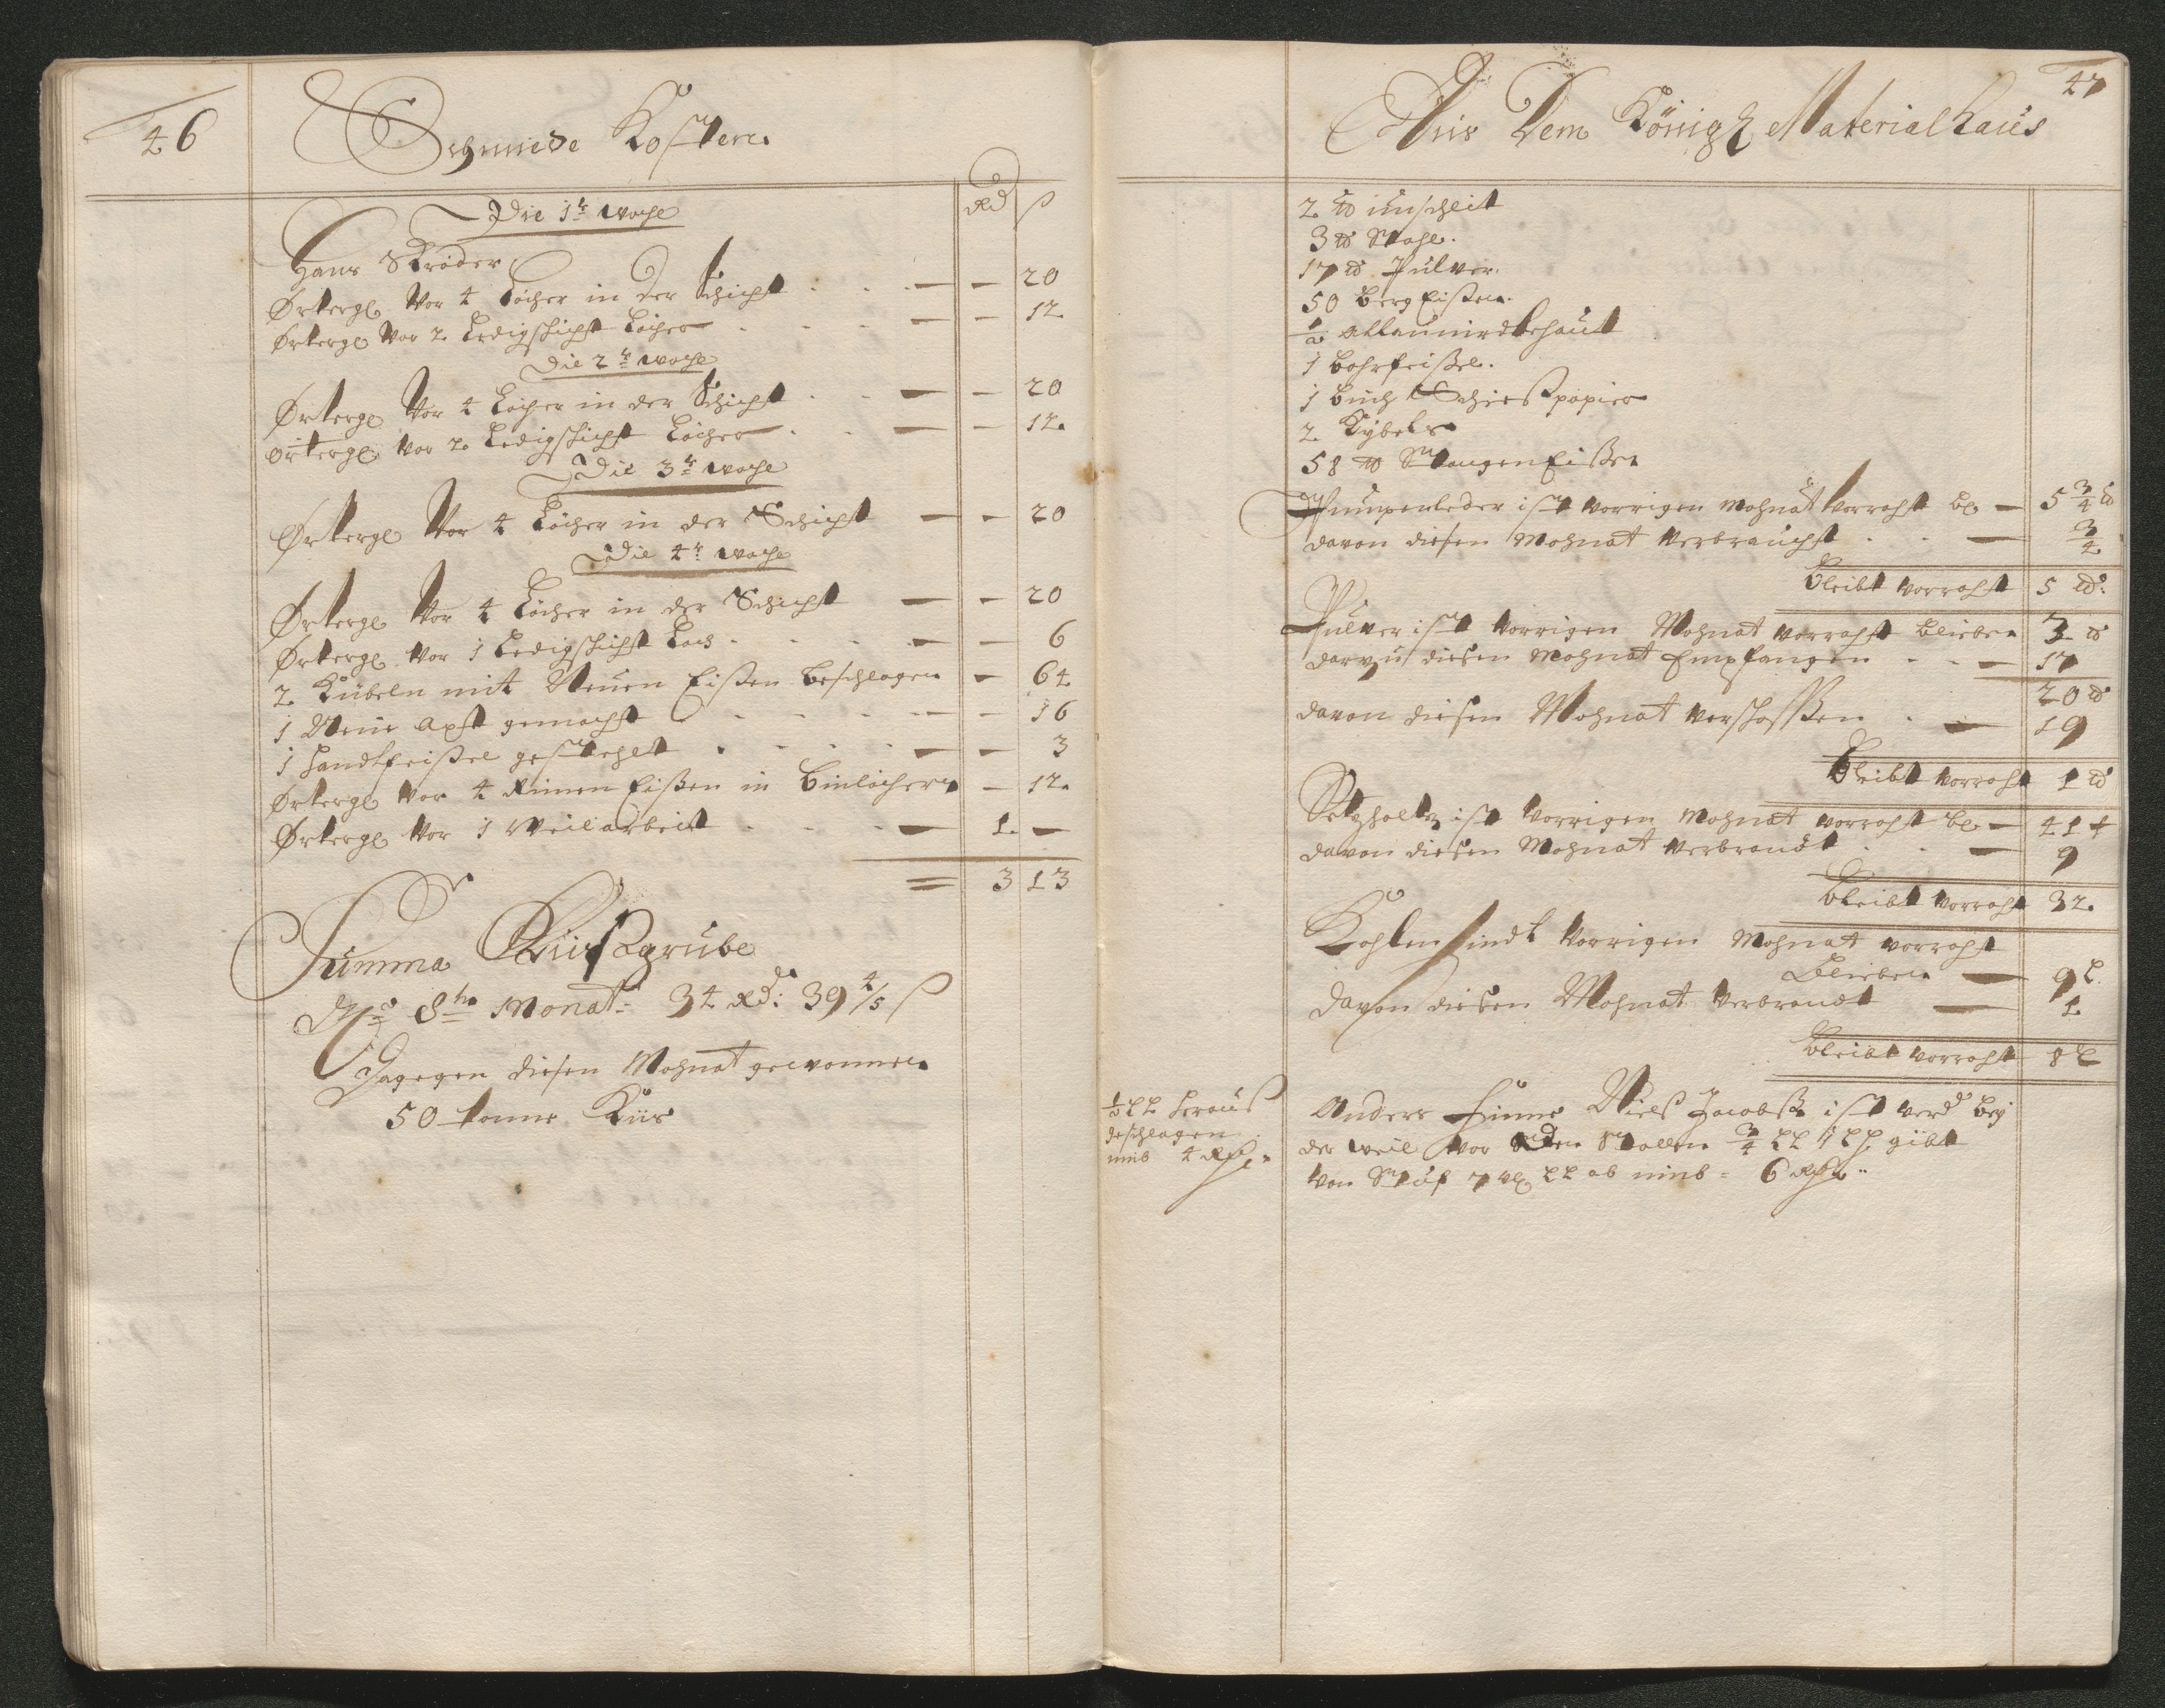 46
Schmiede Kosten
Rd ß
Die 1te woche
Hans Ströder
Örtergl vor 4 Löcher in der Schicht . . . — — 20
Örtergl vor 2 Ledigschicht Löcher . . . — — 12
Die 2te woche
Örtergl vor 4 Löcher in der Schicht . . — — 20
Örtergl vor 2 Ledigschicht Löcher . . — — 12
Die 3te woche
Örtergl vor 4 Löcher in der Schicht — — 20
Die 4te woche
Örtergl vor 4 Löcher in der Schicht — — 20
Örtergl vor 1 Ledigschicht Loch . . . — — 6
2 Kübeln mit Neuen Eißen beschlagen — 64
1 Neue Axst gemacht . . . . — — 16
1 Handtfeißel gestehlt . . . . — — 3
Örtergl vor 4 Rinnen Eißen in — 12
Örtergl vor 1 Weilarbeit . . . — 1 —
= 3 13
Summa Küißgrube
8te Monat: 34 Rd: 39 4/5 ß
Dagegen diesen Mohnat gewonnen
50 tonne Kiis
47
Aus Dem Königl Materialhaus
2 ℔ unschleit
3 ℔ Stahl.
17 ℔ Pulver.
50 berg Eißen.
1/2
1 bohrfeißel.
1 buch Schießpapier
2 Kybels
58 ℔ Stangen Eißen
Pumpenleder ist vorrigen Mohnat Vorraht bl — 5 3/4 ℔
davon diesen Mohnat Verbraucht . . — 3/4
bleibt vorraht 5 ℔:
Pulver ist vorrigen Mohnat vorraht blieben 3 ℔
darzu diesen Mohnat Empfangen . . — 17
20 ℔
davon diesen Mohnat verschossen . — 19
bleibt vorraht 1 ℔
Setzholtz ist vorrigen Mohnat vorraht bl — 41
davon diesen Mohnat verbrandt . . — 9
bleibt vorraht 32
Kohlen sindt vorrigen Mohnat vorraht
blieben — 9 L
davon diesen Mohnat verbrandt — 1
bleibt vorraht 8 L
1/2 LL heraus
geschlagen
4
Anders Finne Niels Jacobß ist verd bey
der weil vor den Stollen 3/4 LL gibt
von 7 LL ab 6